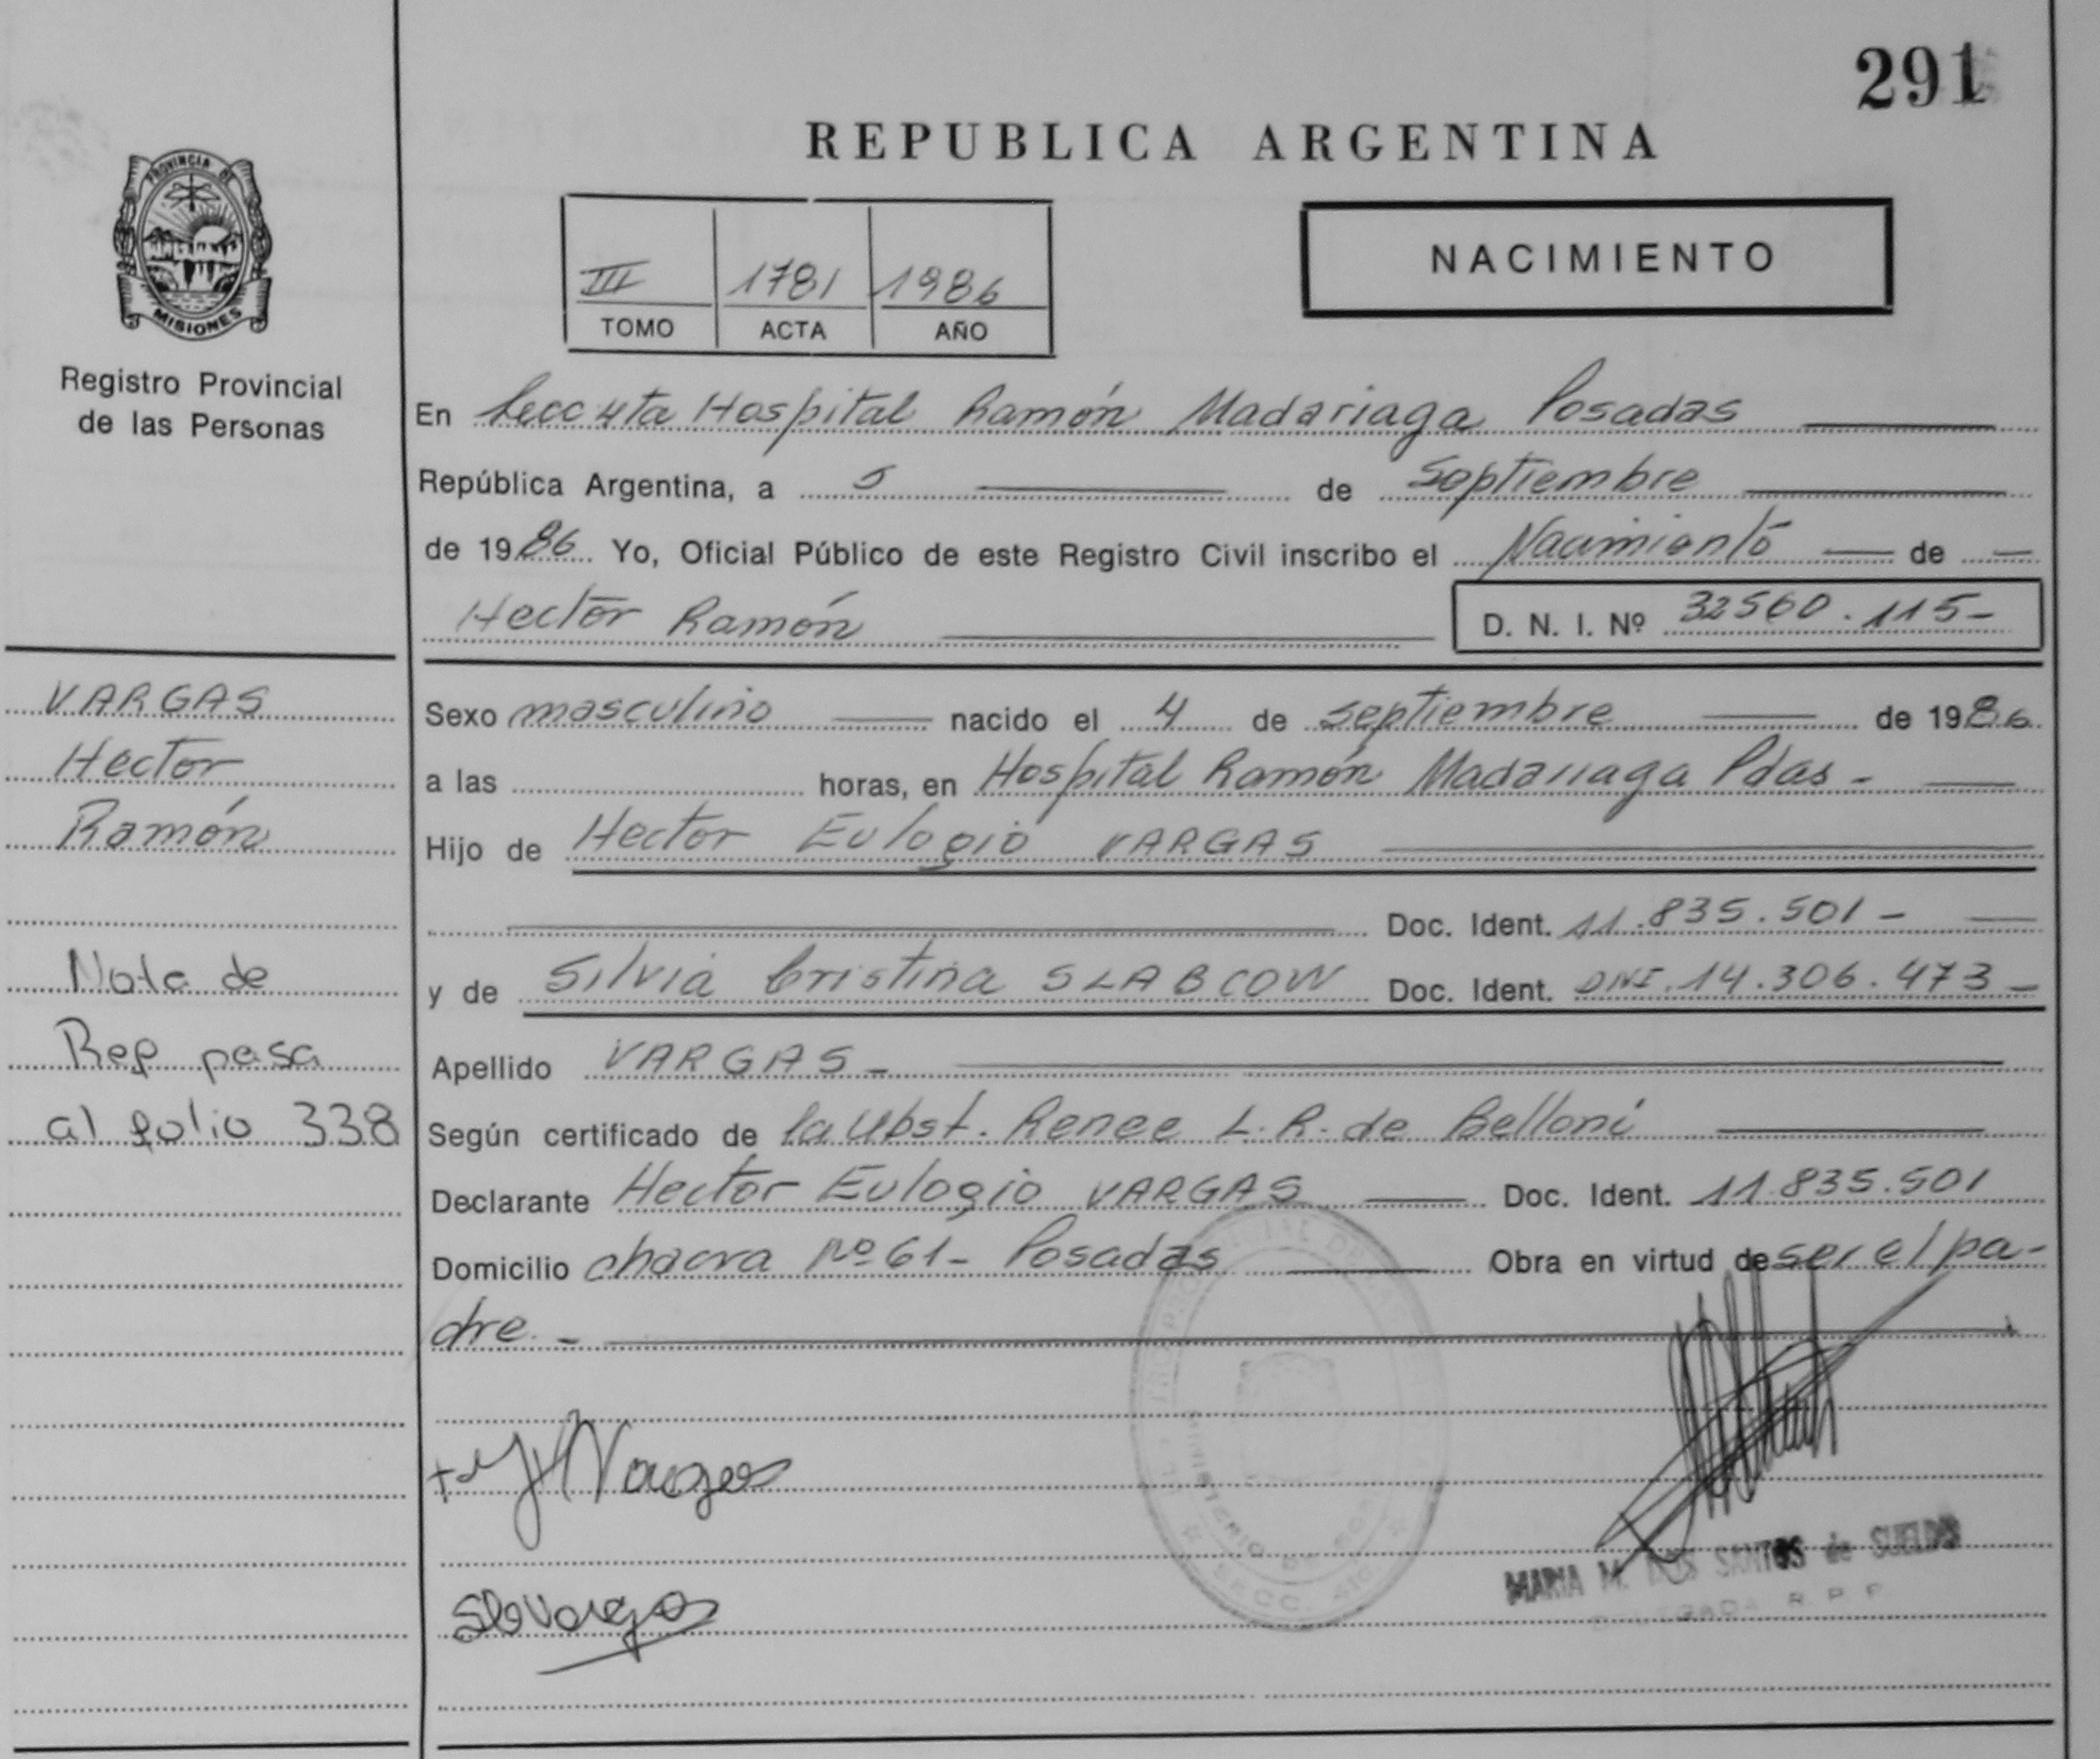 291
REPUBLICA ARGENTINA
PROVINCIA DE
MISIONES
Registro Provincial
de las Personas
III 1781 1986
TOMO ACTA AÑO
NACIMIENTO
En Secc 4ta Hospital Ramón Madariaga Posadas
República Argentina, a 5 de septiembre
de 1986 Yo, Oficial Público de este Registro Civil inscribo el Nacimiento de
Hector Ramón D. N. I. Nº 32560.115-
VARGAS
Hector
Ramón
Nota de
Rep pasa
al folio 338
Sexo masculino nacido el 4 de septiembre de 1986
a las horas, en Hospital Ramón Madariaga Pdas-
Hijo de Hector Eulogio VARGAS
Doc. Ident. 11.835.501-
y de Silvia Cristina SLABCOW Doc. Ident. DNI.14.306.473-
Apellido VARGAS-
Según certificado de la Obst. Renee L.R. de Belloni
Declarante Hector Eulogio VARGAS Doc. Ident. 11.835.501
Domicilio chacra Nº 61- Posadas Obra en virtud de ser el pa-
dre.-
MINISTERIO DE
SECC. 4ta
Vargas
MARIA M. DOS SANTOS de SUELDO
R. P. P.